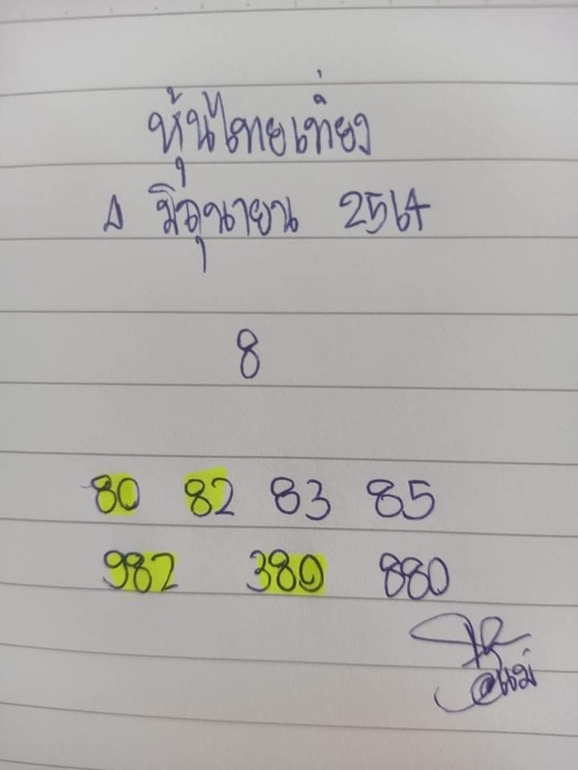 หุ้นไทยเที่ยง
4 มิถุนายน 2564
8
80 82 83 85
982 380 880